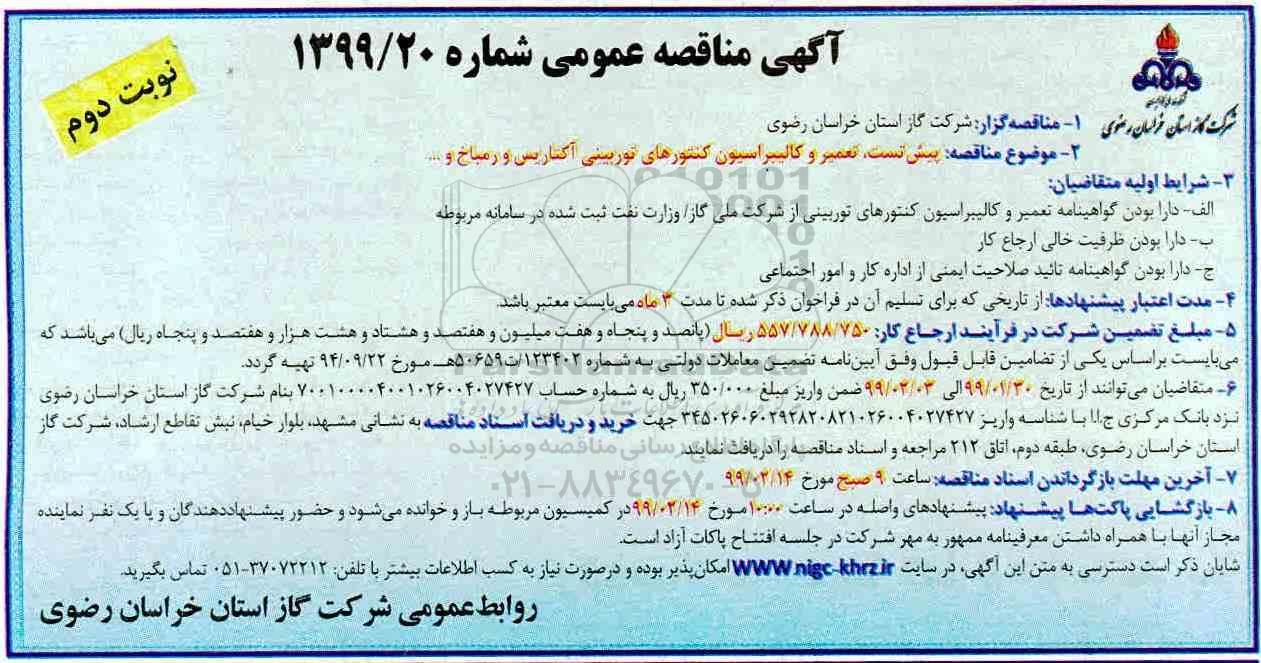 آگهی مناقصه عمومی شماره ۱۳۹۹/۲۰
نوبت دوم
شرکت گاز استان خراسان رضوی
۱- مناقصه‌گزار: شرکت گاز استان خراسان رضوی
۲- موضوع مناقصه: پیش‌تست، تعمیر و کالیبراسیون کنتورهای توربینی آکتاریس و رمباخ و ...
۳- شرایط اولیه متقاضیان:
الف- دارا بودن گواهینامه تعمیر و کالیبراسیون کنتورهای توربینی از شرکت ملی گاز/ وزارت نفت ثبت شده در سامانه مربوطه
ب- دارا بودن ظرفیت خالی ارجاع کار
ج- دارا بودن گواهینامه تائید صلاحیت ایمنی از اداره کار و امور اجتماعی
۴- مدت اعتبار پیشنهادها: از تاریخی که برای تسلیم آن در فراخوان ذکر شده تا مدت ۳ ماه می‌بایست معتبر باشد.
۵- مبلغ تضمین شرکت در فرآیند ارجاع کار: ۵۵۷/۷۸۸/۷۵۰ ریال (پانصد و پنجاه و هفت میلیون و هفتصد و هشتاد و هشت هزار و هفتصد و پنجاه ریال) می‌باشد که
می‌بایست براساس یکی از تضامین قابل قبول وفق آیین‌نامه تضمین معاملات دولتی به شماره ۱۲۳۴۰۲/ت۵۰۶۵۹هـ مورخ ۹۴/۰۹/۲۲ تهیه گردد.
۶- متقاضیان می‌توانند از تاریخ ۹۹/۰۱/۳۰ الی ۹۹/۰۲/۰۳ ضمن واریز مبلغ ۳۵۰/۰۰۰ ریال به شماره حساب ۷۰۰۱۰۰۰۰۴۰۰۱۰۲۶۰۰۴۰۲۷۴۲۷ بنام شرکت گاز استان خراسان رضوی
نزد بانک مرکزی ج.ا.ا با شناسه واریز ۳۴۵۰۲۶۰۶۰۲۹۲۸۲۰۸۲۱۰۲۶۰۰۴۰۲۷۴۲۷ جهت خرید و دریافت اسناد مناقصه به نشانی مشهد، بلوار خیام، نبش تقاطع ارشاد، شرکت گاز
استان خراسان رضوی، طبقه دوم، اتاق ۲۱۲ مراجعه و اسناد مناقصه را دریافت نمایند.
۷- آخرین مهلت بازگرداندن اسناد مناقصه: ساعت ۹ صبح مورخ ۹۹/۰۲/۱۴
۸- بازگشایی پاکت‌ها پیشنهاد: پیشنهادهای واصله در ساعت ۱۰:۰۰ مورخ ۹۹/۰۲/۱۴ در کمیسیون مربوطه باز و خوانده می‌شود و حضور پیشنهاددهندگان و یا یک نفر نماینده
مجاز آنها با همراه داشتن معرفینامه ممهور به مهر شرکت در جلسه افتتاح پاکات آزاد است.
شایان ذکر است دسترسی به متن این آگهی، در سایت www.nigc-khrz.ir امکان‌پذیر بوده و درصورت نیاز به کسب اطلاعات بیشتر با تلفن: ۳۷۰۷۲۲۱۲-۰۵۱ تماس بگیرید.
روابط‌عمومی شرکت گاز استان خراسان رضوی
ParsNamadData
پایگاه اطلاع رسانی مناقصه و مزایده
۰۲۱-۸۸۳۴۹۶۷۰-۵